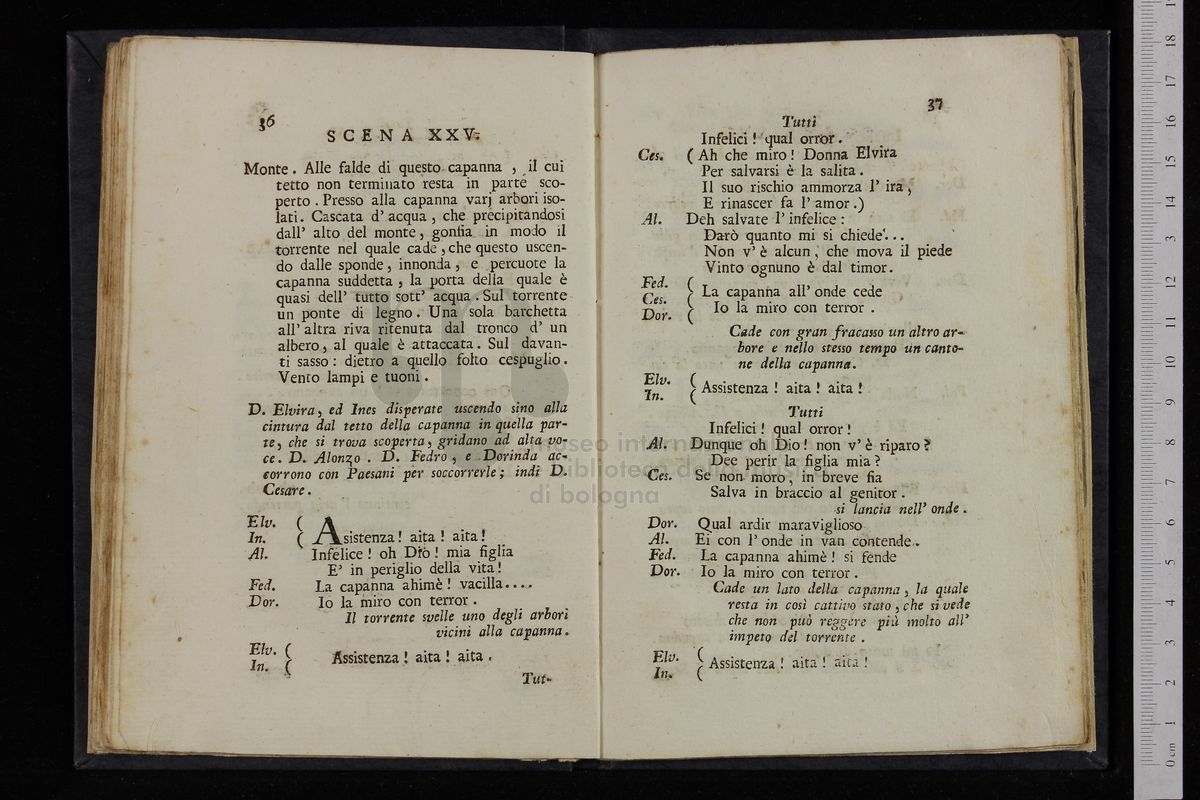 36
SCENA XXV.
Monte. Alle falde di questo capanna, il cui
tetto non terminato resta in parte sco-
perto. Presso alla capanna varj arbori iso-
lati. Cascata d' acqua, che precipitandosi
dall' alto del monte, gonfia in modo il
torrente nel quale cade, che questo uscen-
do dalle sponde, innonda, e percuote la
capanna suddetta, la porta della quale è
quasi dell' tutto sott' acqua. Sul torrente
un ponte di legno. Una sola barchetta
all' altra riva ritenuta dal tronco d' un
albero, al quale è attaccata. Sul davan-
ti sasso: dietro a quello folto cespuglio.
Vento lampi e tuoni.
D. Elvira, ed Ines disperate uscendo sino alla
cintura dal tetto della capanna in quella par-
te, che si trova scoperta, gridano ad alta vo-
ce. D. Alonzo. D. Fedro, e Dorinda ac-
corrono con Paesani per soccorrerle; indi D.
Cesare.
Elv.
In. ( Asistenza! aita! aita!
Al. Infelice! oh Dio! mia figlia
E' in periglio della vita!
Fed. La capanna ahimè! vacilla....
Dor. Io la miro con terror.
Il torrente svelle uno degli arbori
vicini alla capanna.
Elv.
In. ( Assistenza! aita! aita.
Tut-
37
Tutti
Infelici! qual orror.
Ces. (Ah che miro! Donna Elvira
Per salvarsi è la salita.
Il suo rischio ammorza l' ira,
E rinascer fa l' amor.)
Al. Deh salvate l' infelice:
Darò quanto mi si chiede...
Non v' è alcun, che mova il piede
Vinto ognuno è dal timor.
Fed.
Ces. ( La capanna all' onde cede
Dor. ( Io la miro con terror.
Cade con gran fracasso un altro ar-
bore e nello stesso tempo un canto-
ne della capanna.
Elv.
In. ( Assistenza! aita! aita!
Tutti
Infelici! qual orror!
Al. Dunque oh Dio! non v' è riparo?
Dee perir la figlia mia?
Ces. Se non moro, in breve fia
Salva in braccio al genitor.
si lancia nell' onde.
Dor. Qual ardir maraviglioso
Al. Ei con l' onde in van contende.
Fed. La capanna ahimè! si fende
Dor. Io la miro con terror.
Cade un lato della capanna, la quale
resta in così cattivo stato, che si vede
che non può reggere più molto all'
impeto del torrente.
Elv.
In. ( Assistenza! aita! aita!
museo internazionale
e biblioteca della musica
di bologna
0 cm 1 2 3 4 5 6 7 8 9 10 11 12 13 14 15 16 17 18